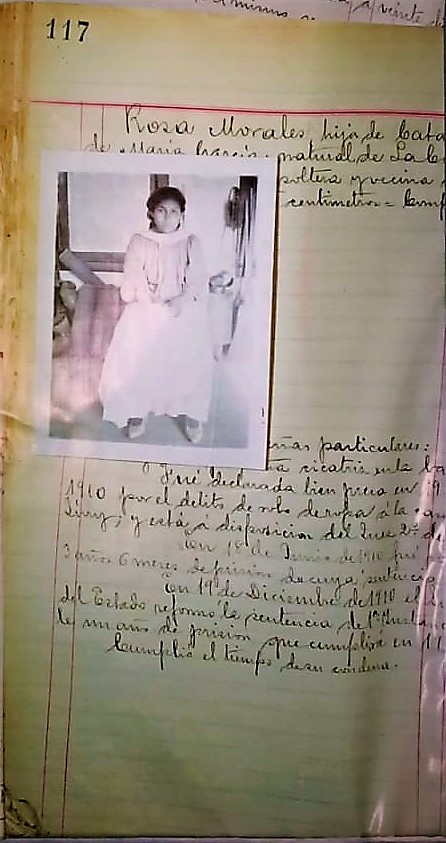 117
Rosa Morales hija de Cata
de María García, natural de La
soltera y vecina
centimetros =
señas particulares:
cicatriz en la ba
Fué declarada bien presa en 19
1910 por el delito de robo de ropa á la
y está á disposicion del Juez 2º de
En 18 de Junio de 1910 fué
3 años 6 meses de prision de cuya sentencia
En 19 de Diciembre de 1910 el
del Estado reformó la sentencia de 1ª Insta
le un año de prision que cumplirá en 11
Cumplió el tiempo de su condena.